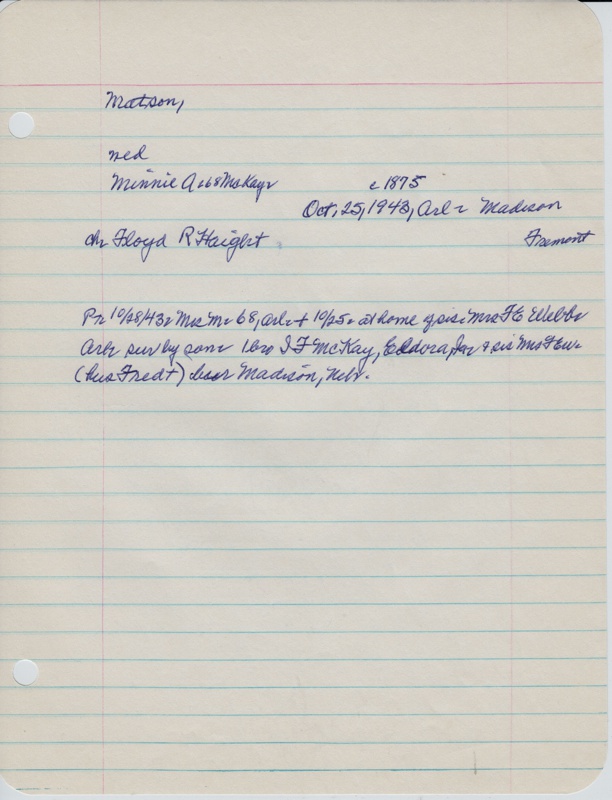 Matson,
wed
Minnie A 68 McKay c 1875
Oct, 25, 1943, Arl Madison
ch Floyd R Haight Fremont
P 10/28/43 Mrs M 68, Arl + 10/25 at home of sis Mrs F E Webb
Arl sur by son 1 bro I F McKay, Eldora, Ia + sis Mrs F E W
(hus Fred +) bur Madison, Nebr.